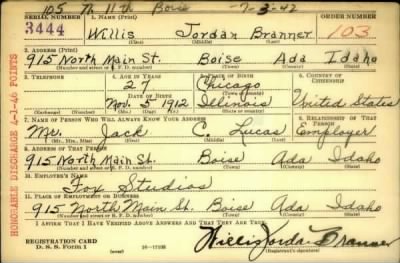 105 Th 11th Boise 7-3-42
SERIAL NUMBER 1. NAME (Print) ORDER NUMBER
3444 Willis Jordan Branner 103
(First) (Middle) (Last)
2. ADDRESS (Print)
915 North Main St. Boise Ada Idaho
(Number and street or R. F. D. number) (Town) (County) (State)
3. TELEPHONE 4. AGE IN YEARS 5. PLACE OF BIRTH 6. COUNTRY OF CITIZENSHIP
27 Chicago
DATE OF BIRTH (Town or county)
Nov. 5 1912 Illinois United States
(Exchange) (Number) (Mo.) (Day) (Yr.) (State or country)
7. NAME OF PERSON WHO WILL ALWAYS KNOW YOUR ADDRESS 8. RELATIONSHIP OF THAT PERSON
Mr. Jack C. Lucas Employer
(Mr., Mrs., Miss) (First) (Middle) (Last)
9. ADDRESS OF THAT PERSON
915 North Main St. Boise Ada Idaho
(Number and street or R. F. D. number) (Town) (County) (State)
10. EMPLOYER'S NAME
Fox Studios
11. PLACE OF EMPLOYMENT OR BUSINESS
915 North Main St. Boise Ada Idaho
(Number and street or R. F. D. number) (Town) (County) (State)
I AFFIRM THAT I HAVE VERIFIED ABOVE ANSWERS AND THAT THEY ARE TRUE.
REGISTRATION CARD
D. S. S. Form 1 16-17105 Willis Jordan Branner
HONORABLE DISCHARGE (-1-46 POINTS